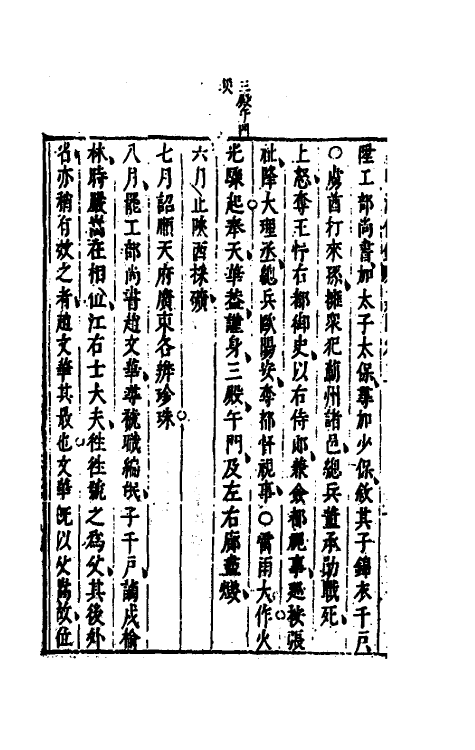 三殿午門
災
陞工部尚書加太子太保尋加少保敘其子錦衣千戶
○虜酋打來孫擁眾犯薊州諸邑總兵蔣承勛戰死
上怒奪王忬右都御史以右侍郎兼僉都視事巡按張
祉降大理丞總兵歐陽安奪都督視事○雷雨大作火
光驟起奉天華蓋謹身三殿午門及左右廊盡燬
六月止陝西採礦
七月詔順天府廣東各辦珍珠
八月罷工部尚書趙文華尋褫職編氓子千戶謫戍榆
林時嚴嵩在相位江右士大夫徃徃號之為父其後外
省亦稍有效之者趙文華其最也文華既以父嵩故位